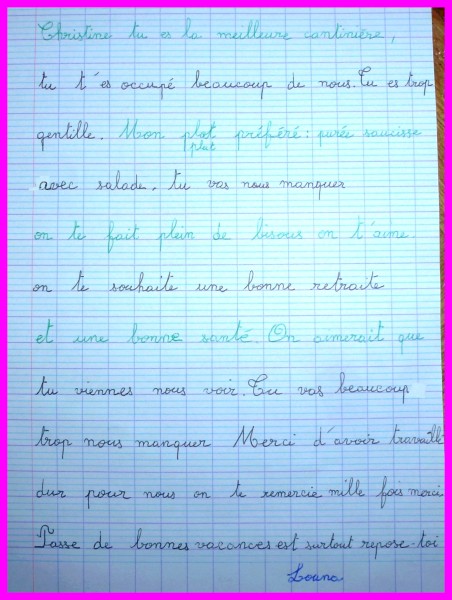 Christine tu es la meilleure cantinière,
tu t'es occupé beaucoup de nous. Tu es trop
gentille. Mon plat préféré : purée saucisse
plat
avec salade. tu vas nous manquer
on te fait plein de bisous on t'aime.
on te souhaite une bonne retraite
et une bonne santé. On aimerait que
tu viennes nous voir. Tu vas beaucoup
trop nous manquer Merci d'avoir travaillé
dur pour nous on te remercie mille fois merci
Passe de bonnes vacances est surtout repose-toi
Louna